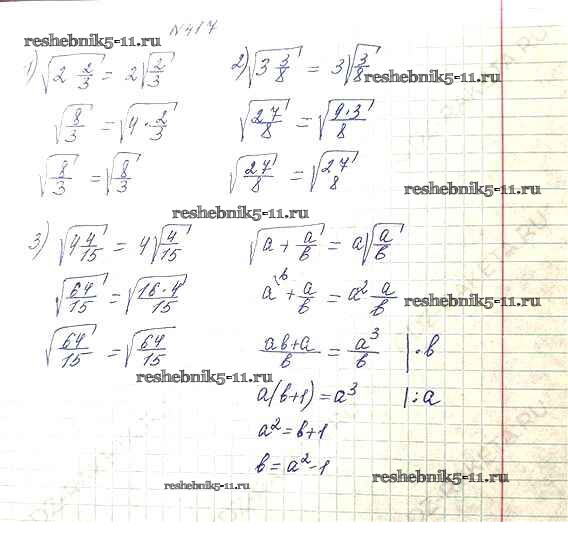 №417
reshebnik5-11.ru
1) √(2 2/3) = 2√(2/3)
√(8/3) = √(4·2/3)
√(8/3) = √(8/3)
2) √(3 3/8) = 3√(3/8)
reshebnik5-11.ru
√(27/8) = √(9·3/8)
√(27/8) = √(27/8)
reshebnik5-11.ru
reshebnik5-11.ru
3) √(4 4/15) = 4√(4/15)
√(64/15) = √(16·4/15)
√(64/15) = √(64/15)
reshebnik5-11.ru
√(a + a/b) = a√(a/b)
a^b + a/b = a² a/b
reshebnik5-11.ru
(ab+a)/b = a³/b |·b
a(b+1) = a³ |:a
a² = b+1
b = a²-1
reshebnik5-11.ru
reshebnik5-11.ru